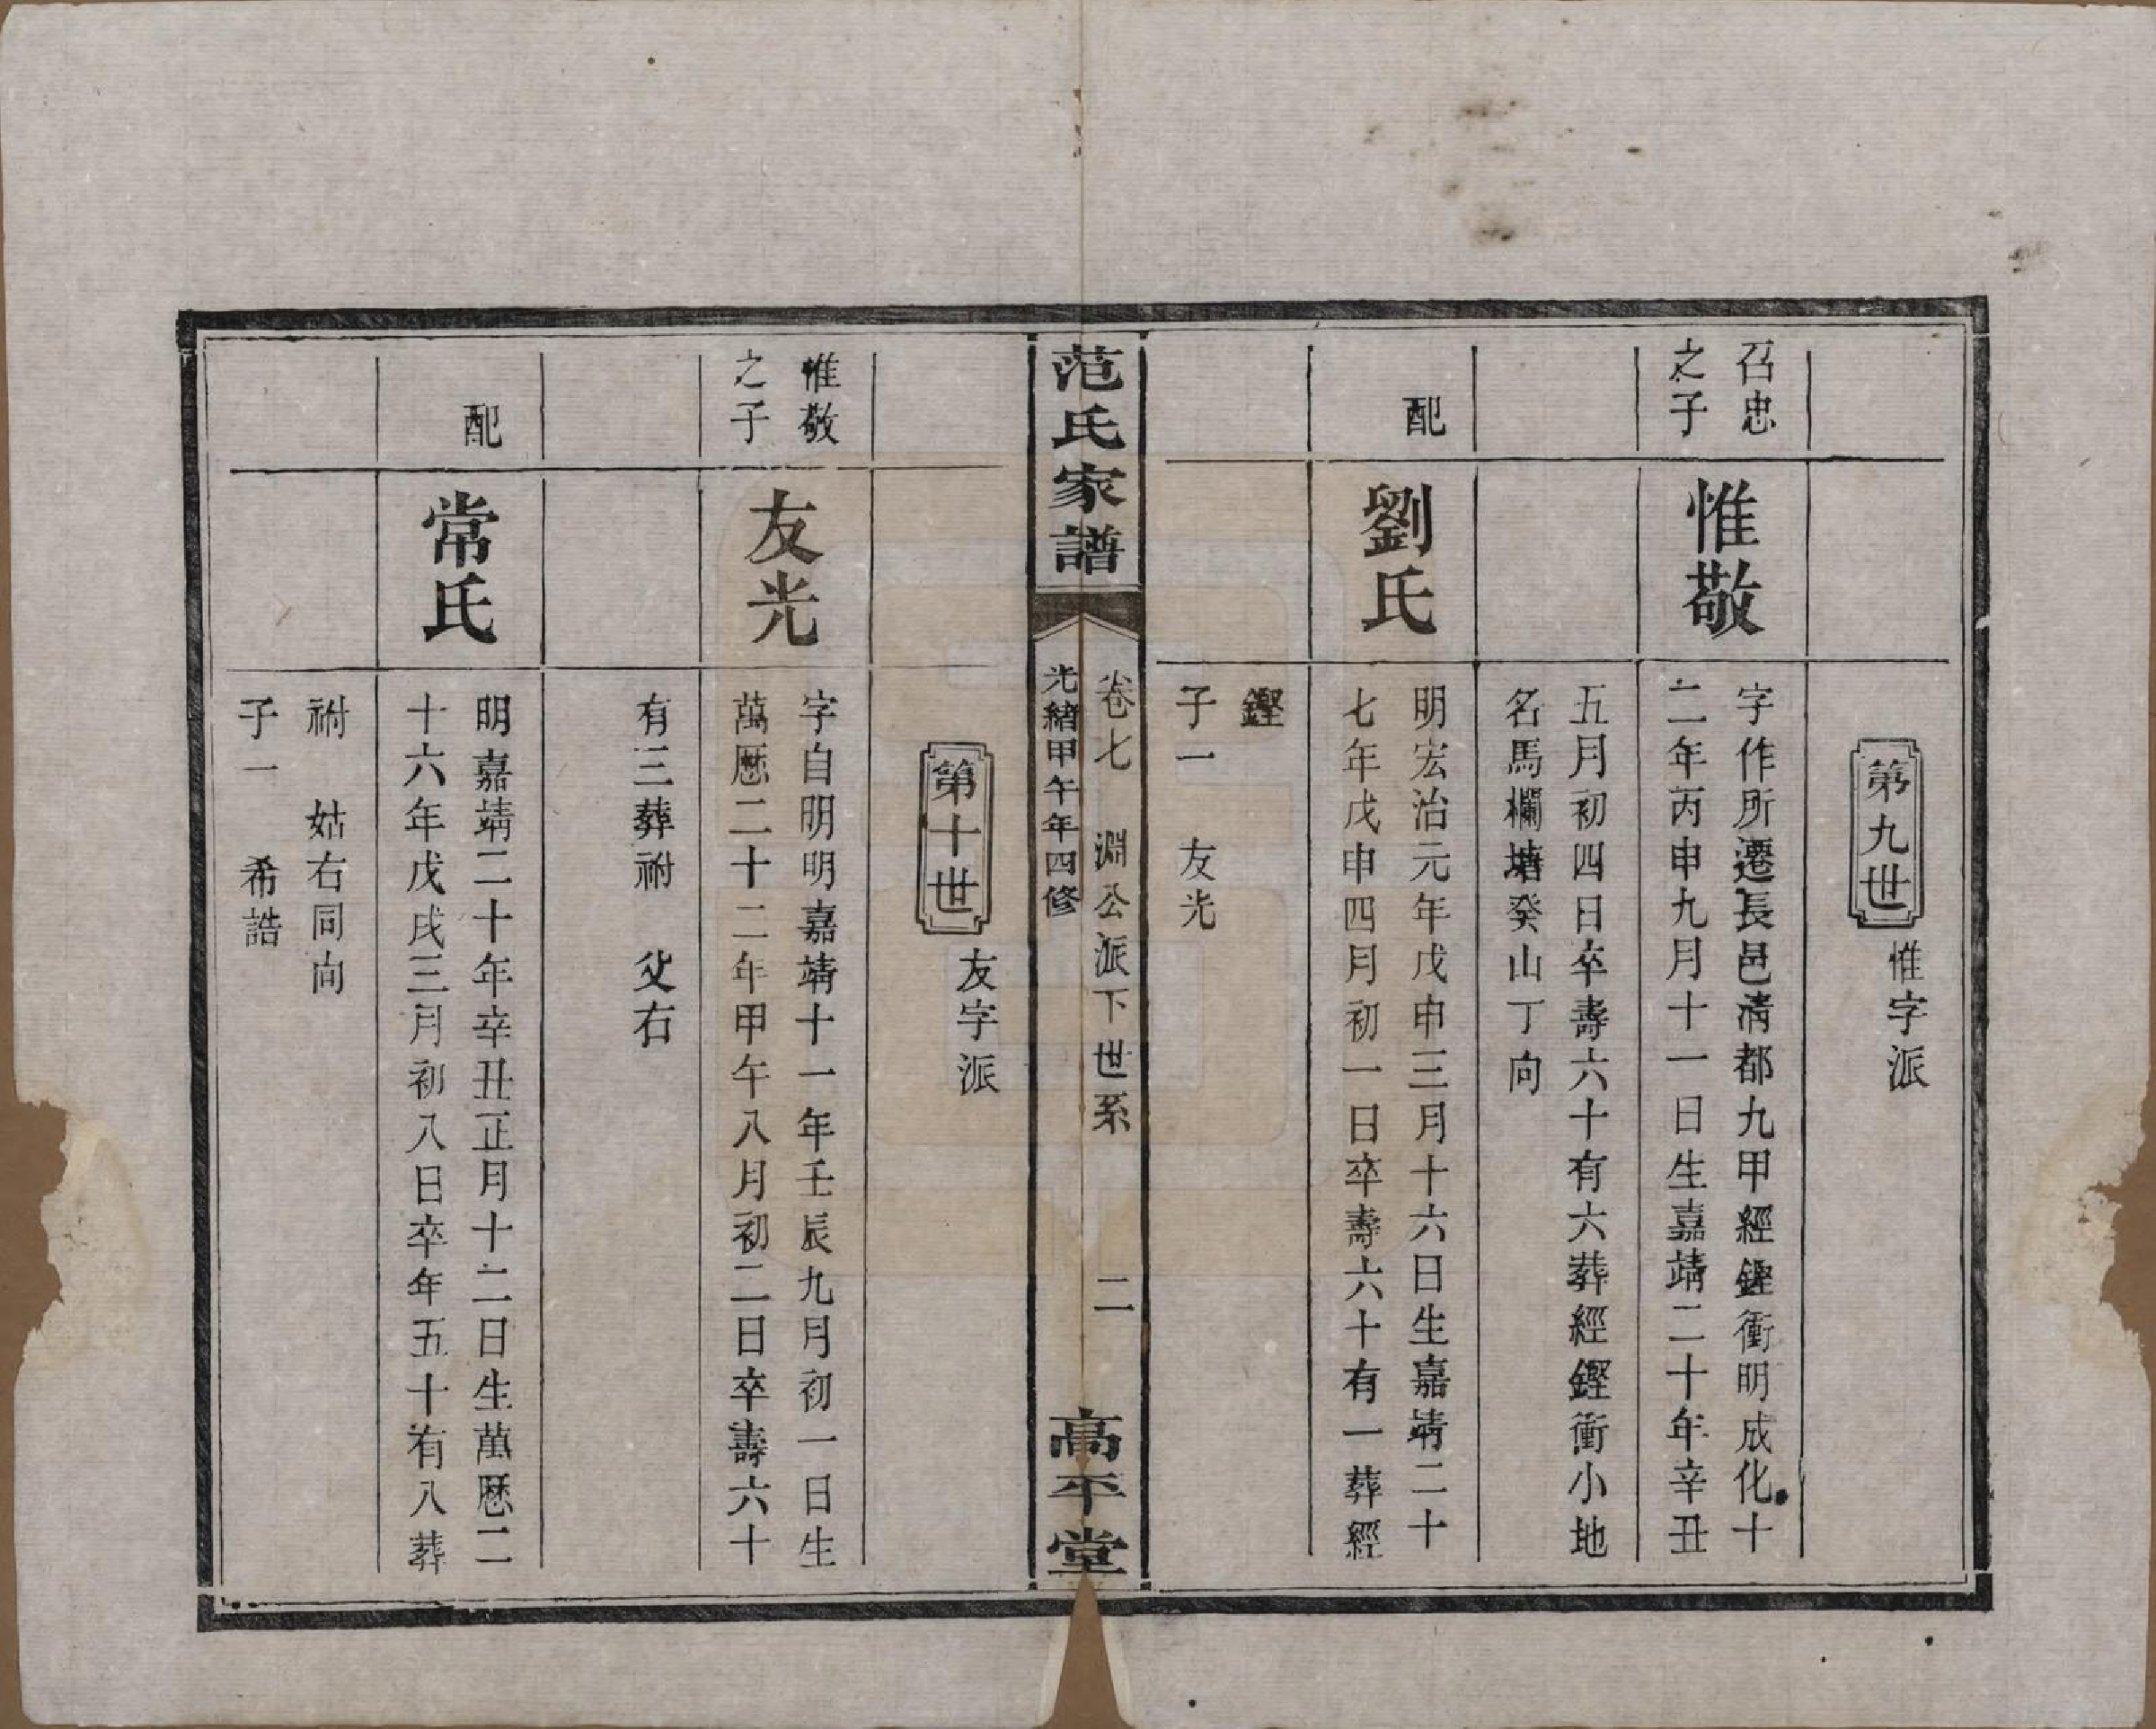 第九世
惟字派
召忠
之子
惟敬
字作所遷長邑淸都九甲經鏗衝明成化十
二年丙申九月十一日生嘉靖二十年辛丑
五月初四日卒壽六十有六葬經鏗衝小地
名馬欄塘癸山丁向
配
劉氏
明宏治元年戊申三月十六日生嘉靖二十
七年戊申四月初一日卒壽六十有一葬經
鏗
子一　友光
范氏家譜
卷七　淵公派下世系　二
光緒甲午年四修
高平堂
第十世
友字派
惟敬
之子
友光
字自明明嘉靖十一年壬辰九月初一日生
萬厯二十二年甲午八月初二日卒壽六十
有三葬祔　父右
配
常氏
明嘉靖二十年辛丑正月十二日生萬厯二
十六年戊戌三月初八日卒年五十有八葬
祔　姑右同向
子一　希誥